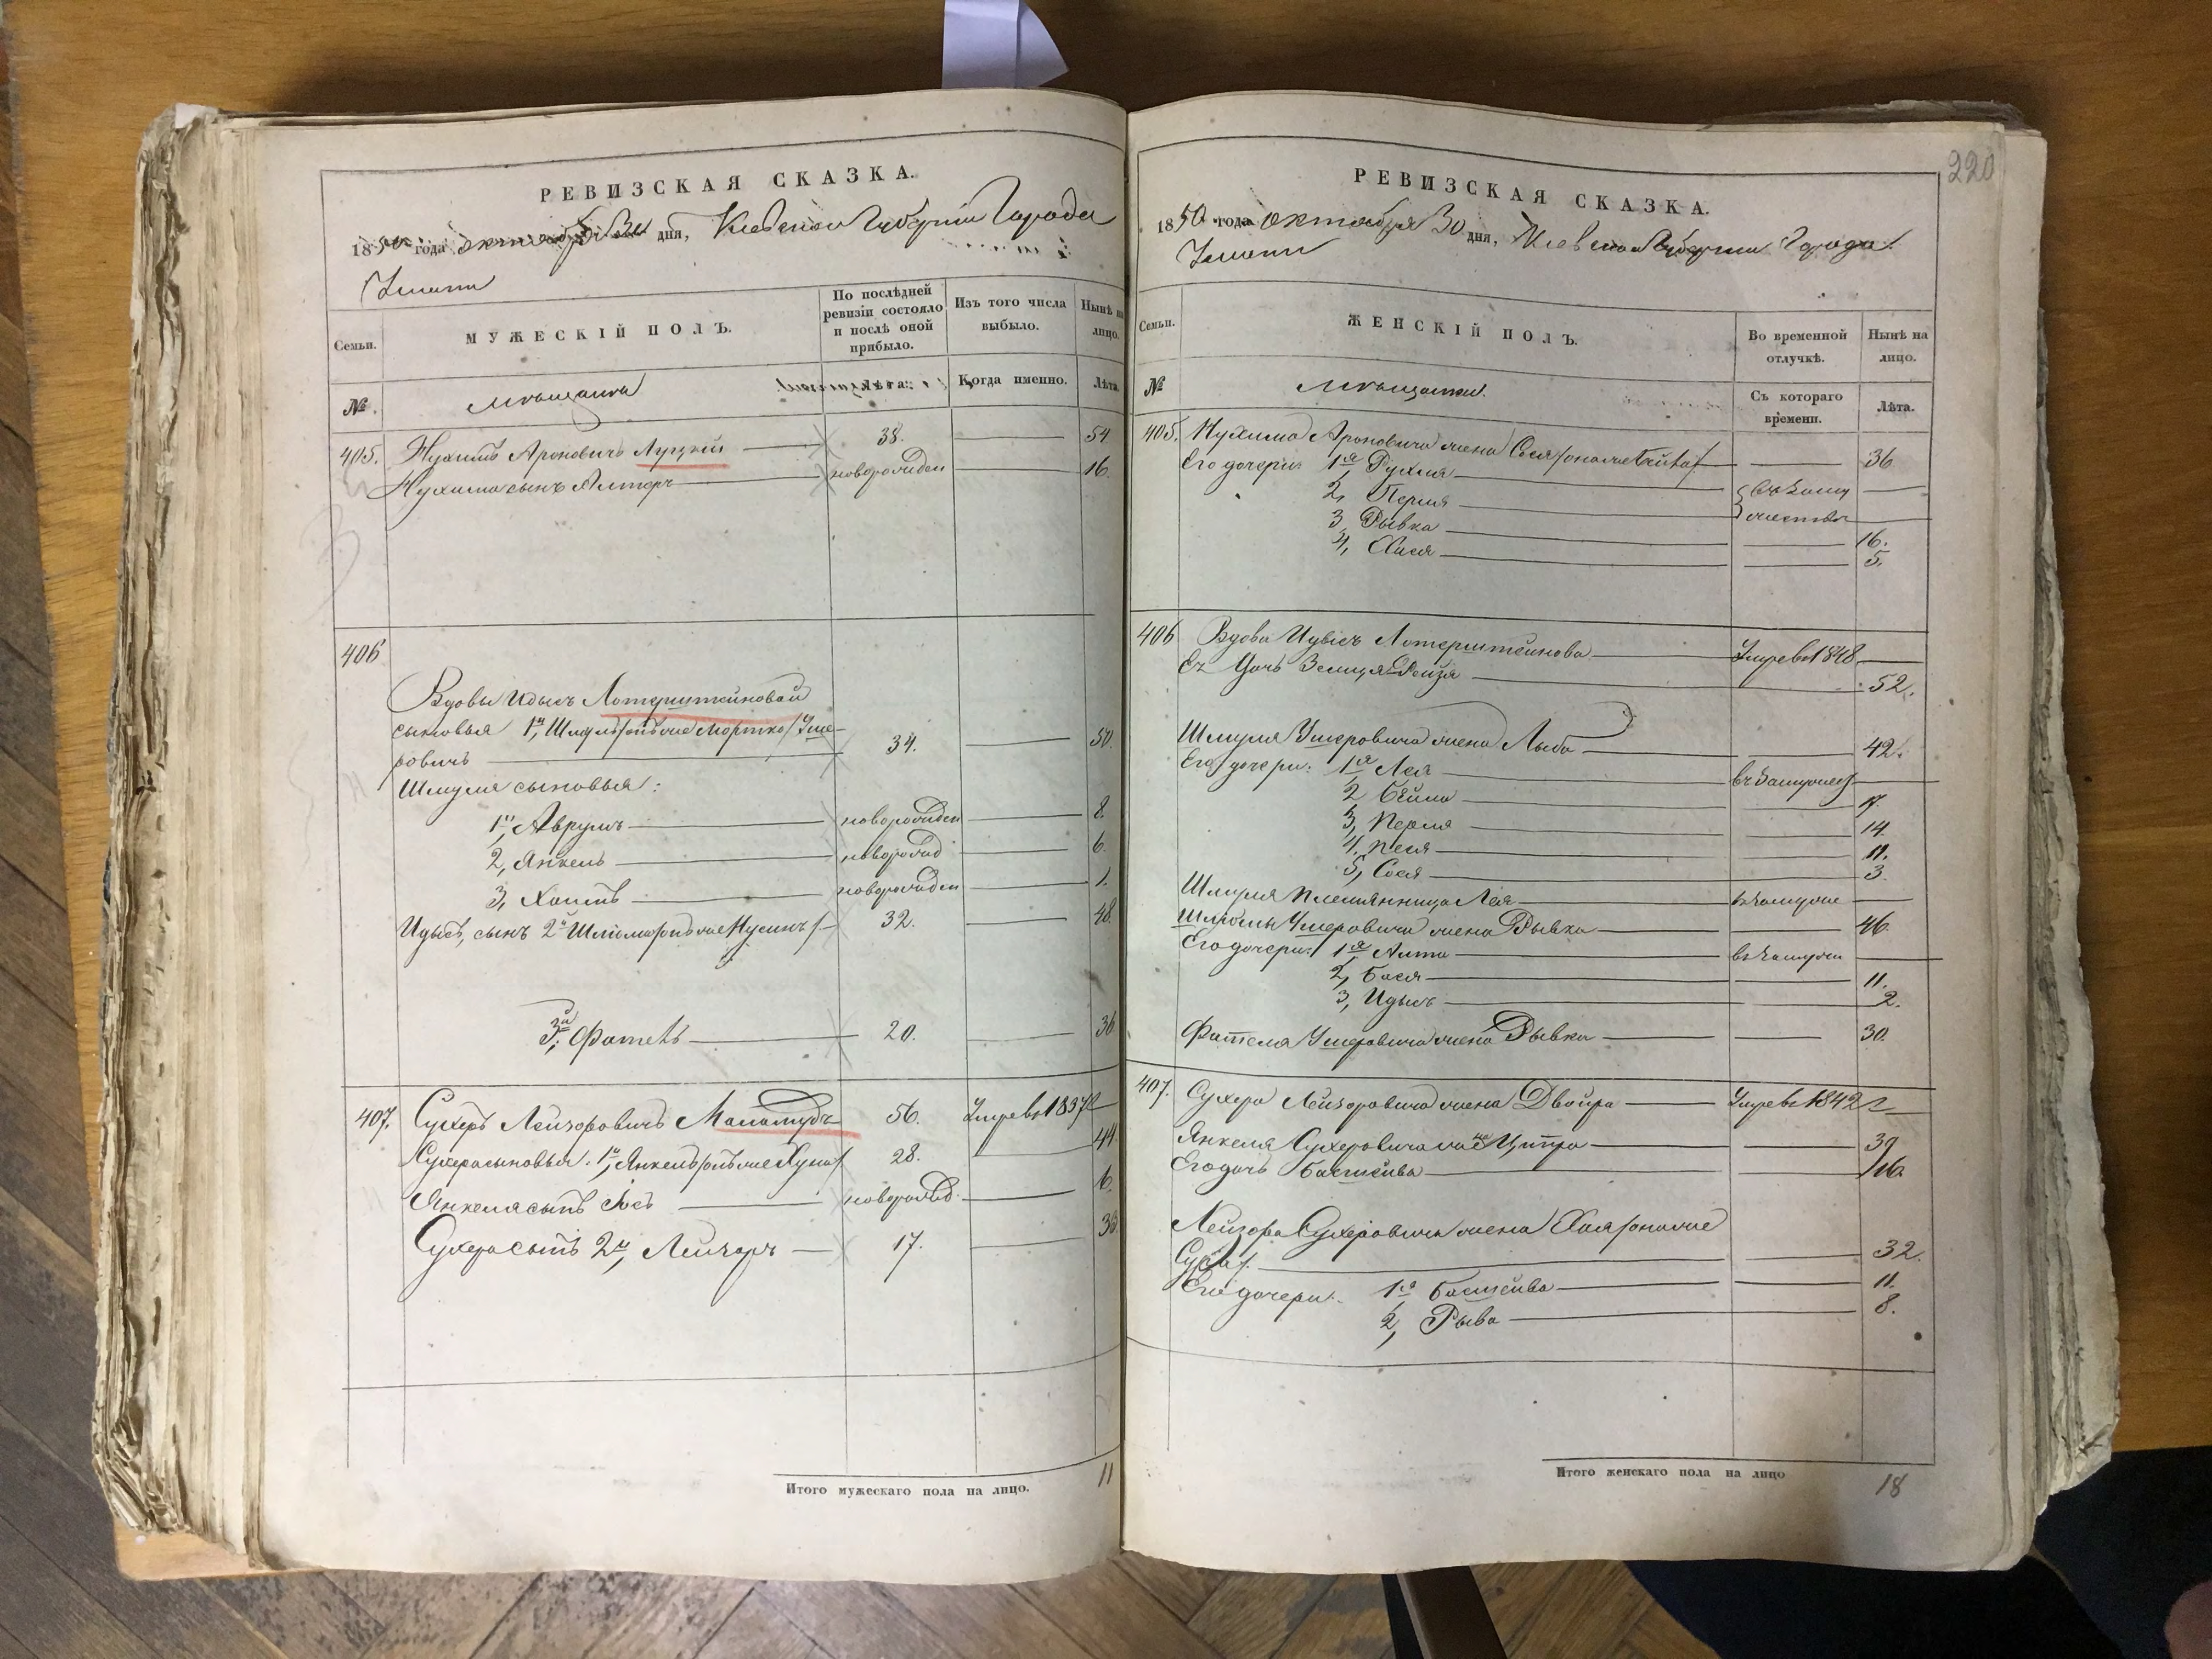 РЕВИЗСКАЯ СКАЗКА.
1850 года октября 30 дня, Киевской Губернии Города
Умани
Семьи.
МУЖЕСКІЙ ПОЛЪ.
По послѣдней ревизіи состояло и послѣ оной прибыло.
Изъ того числа выбыло.
Нынѣ на лицо.
№.
мѣщане
Лѣта.
Когда именно.
Лѣта.
405. Нухимъ Ароновичъ Луцкій 38. 54
Нухима сынъ Алтеръ новорожден 16.
406
Вдовы Идысъ Лотерштейновой
сыновья 1й, Шмуль/онъ же Мортко/ Уше-
ровичъ 34. 50.
Шмуля сыновья:
1й, Аврумъ новорожден 8.
2, Янкель новорожд 6.
3, Хаимъ новорожден 1.
Идысъ, сынъ 2й Шліома/онъ же Нусинъ/ 32. 48.
3й, Фатель 20. 36
407. Сухеръ Лейзоровичъ Маламудъ 56. Умре въ 1837 г
Сухера сыновья: 1й, Янкель/онъ же Суна/ 28. 44
Янкеля сынъ Іось новорожд. 6.
Сухера сынъ 2й, Лейзоръ 17. 33
Итого мужескаго пола на лицо. 11
220
РЕВИЗСКАЯ СКАЗКА.
1850 года октября 30 дня, Киевской Губернии Города
Умани
Семьи.
ЖЕНСКІЙ ПОЛЪ.
Во временной отлучкѣ.
Нынѣ на лицо.
№
мѣщанки.
Съ котораго времени.
Лѣта.
405. Нухима Ароновича жена Сося/она же 36
Его дочери: 1я Рухля
2, Перля въ заму
3, Рывка жествѣ 16.
4, Хася 5.
406 Вдова Идысъ Лотерштейнова Умре въ 1848
Ея дочь Зельда Рейзя 52.
Шмуля Ушеровича жена Лыба 42.
Его дочери: 1я Лея въ замужес
2, Бейла 17.
3, Перля 14.
4, Песя 11.
5, Сося 3.
Шмуля племянница Лея въ замуже
Шліомы Ушеровича жена Рывка 46.
Его дочери: 1я Алта въ замуж
2, Бася 11.
3, Идысъ 2.
Фателя Ушеровича жена Рывка 30.
407. Сухера Лейзоровича жена Двойра Умре въ 1842 г
Янкеля Сухеровича жена Ципра 39
Его дочь Басшейва 16.
Лейзора Сухеровича жена Хая/она же
Сура/ 32.
Его дочери: 1я Басшейва 11.
2, Рыва 8.
Итого женскаго пола на лицо 18